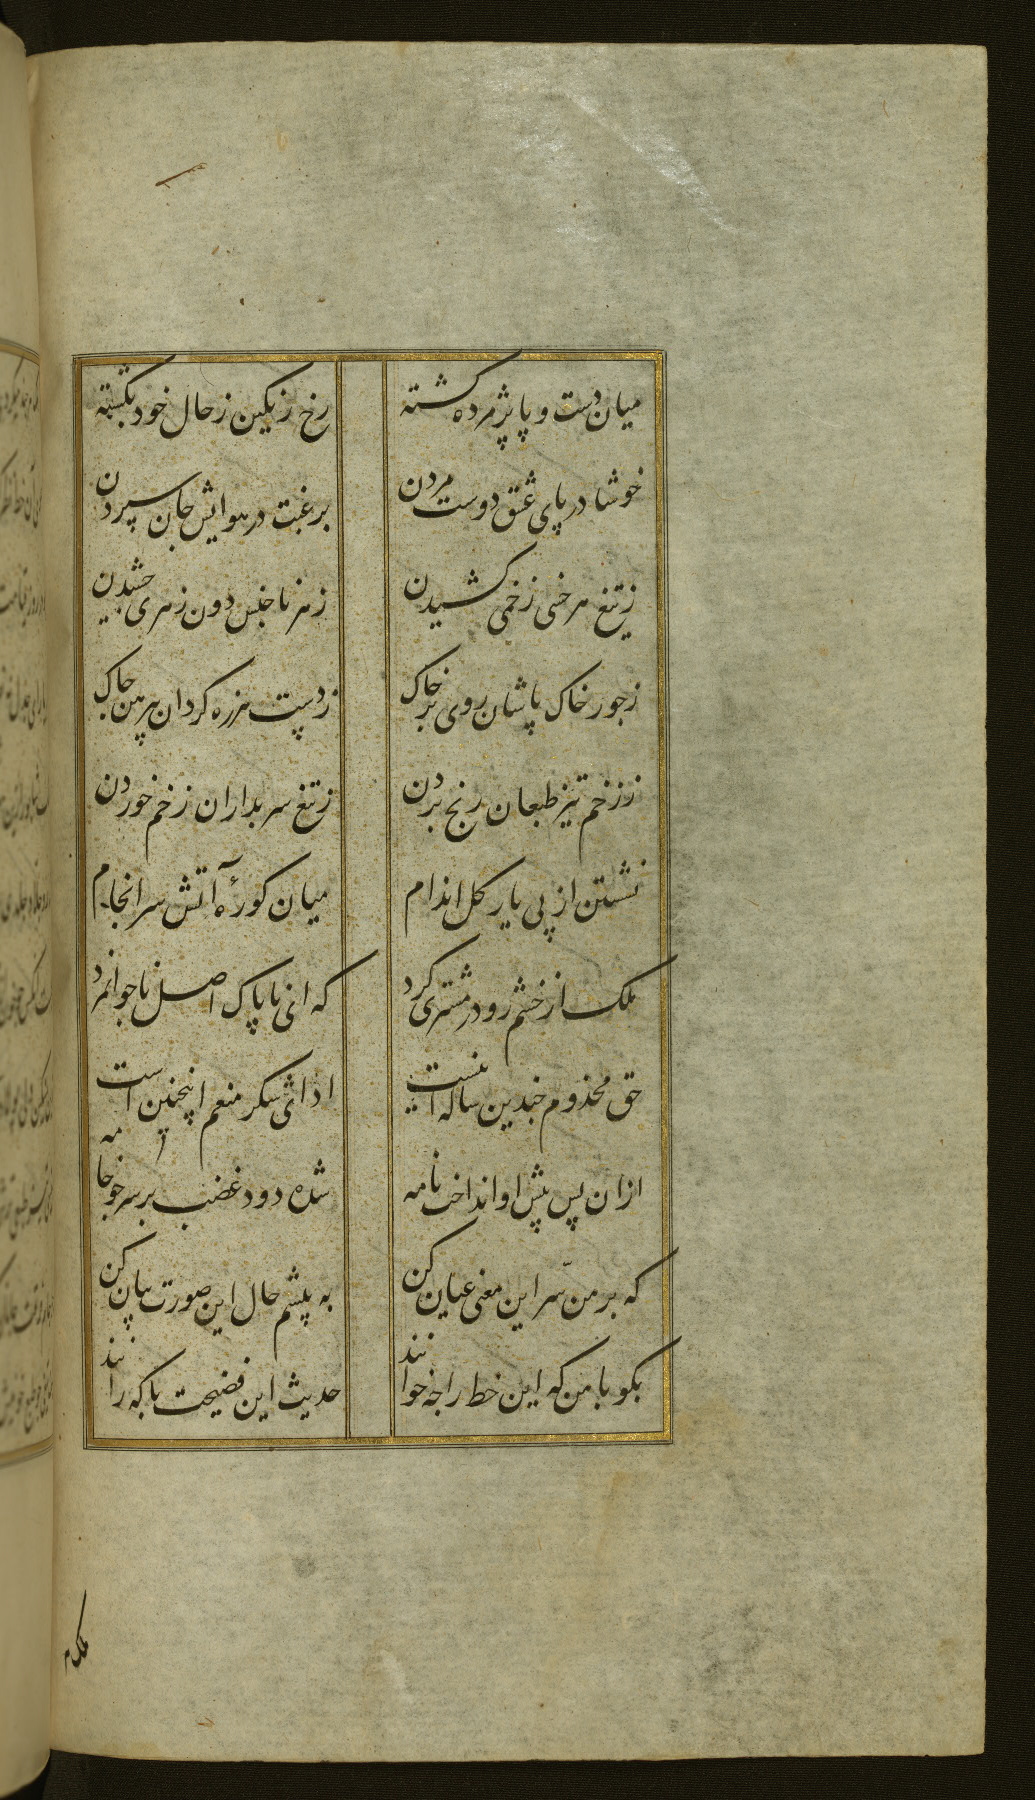 میان دست و پا پژمرده گشته رخ رنگین ز حال خود بگشته
خوشا در پای عشق دوست مردن برغبت در هوایش جان سپردن
ز تیغ هر خسی زخمی کشیدن ز هر ناجنس دون زهری چشیدن
ز جور خاک پاشان روی بر خاک ز دست هرزه کردان پیرهن چاک
ز زخم تیز طبعان رنج بردن ز تیغ سربداران زخم خوردن
نشستن از پی یار کل اندام میان کورهٔ آتش سرانجام
ملک از خشم رو در مشتری کرد که ای ناپاک اصل ناجوانمرد
حق مخذوم چندین ساله اینست ادای شکر منعم اینچنین است
ازان پس پیش او انداخت نامه شده دود غضب بر سر چو خامه
که بر من سرّ این معنی عیان کن به پیشم حال این صورت بیان کن
بکو با من که این خط را چه خوانند حدیث این فضیحت با که رانند